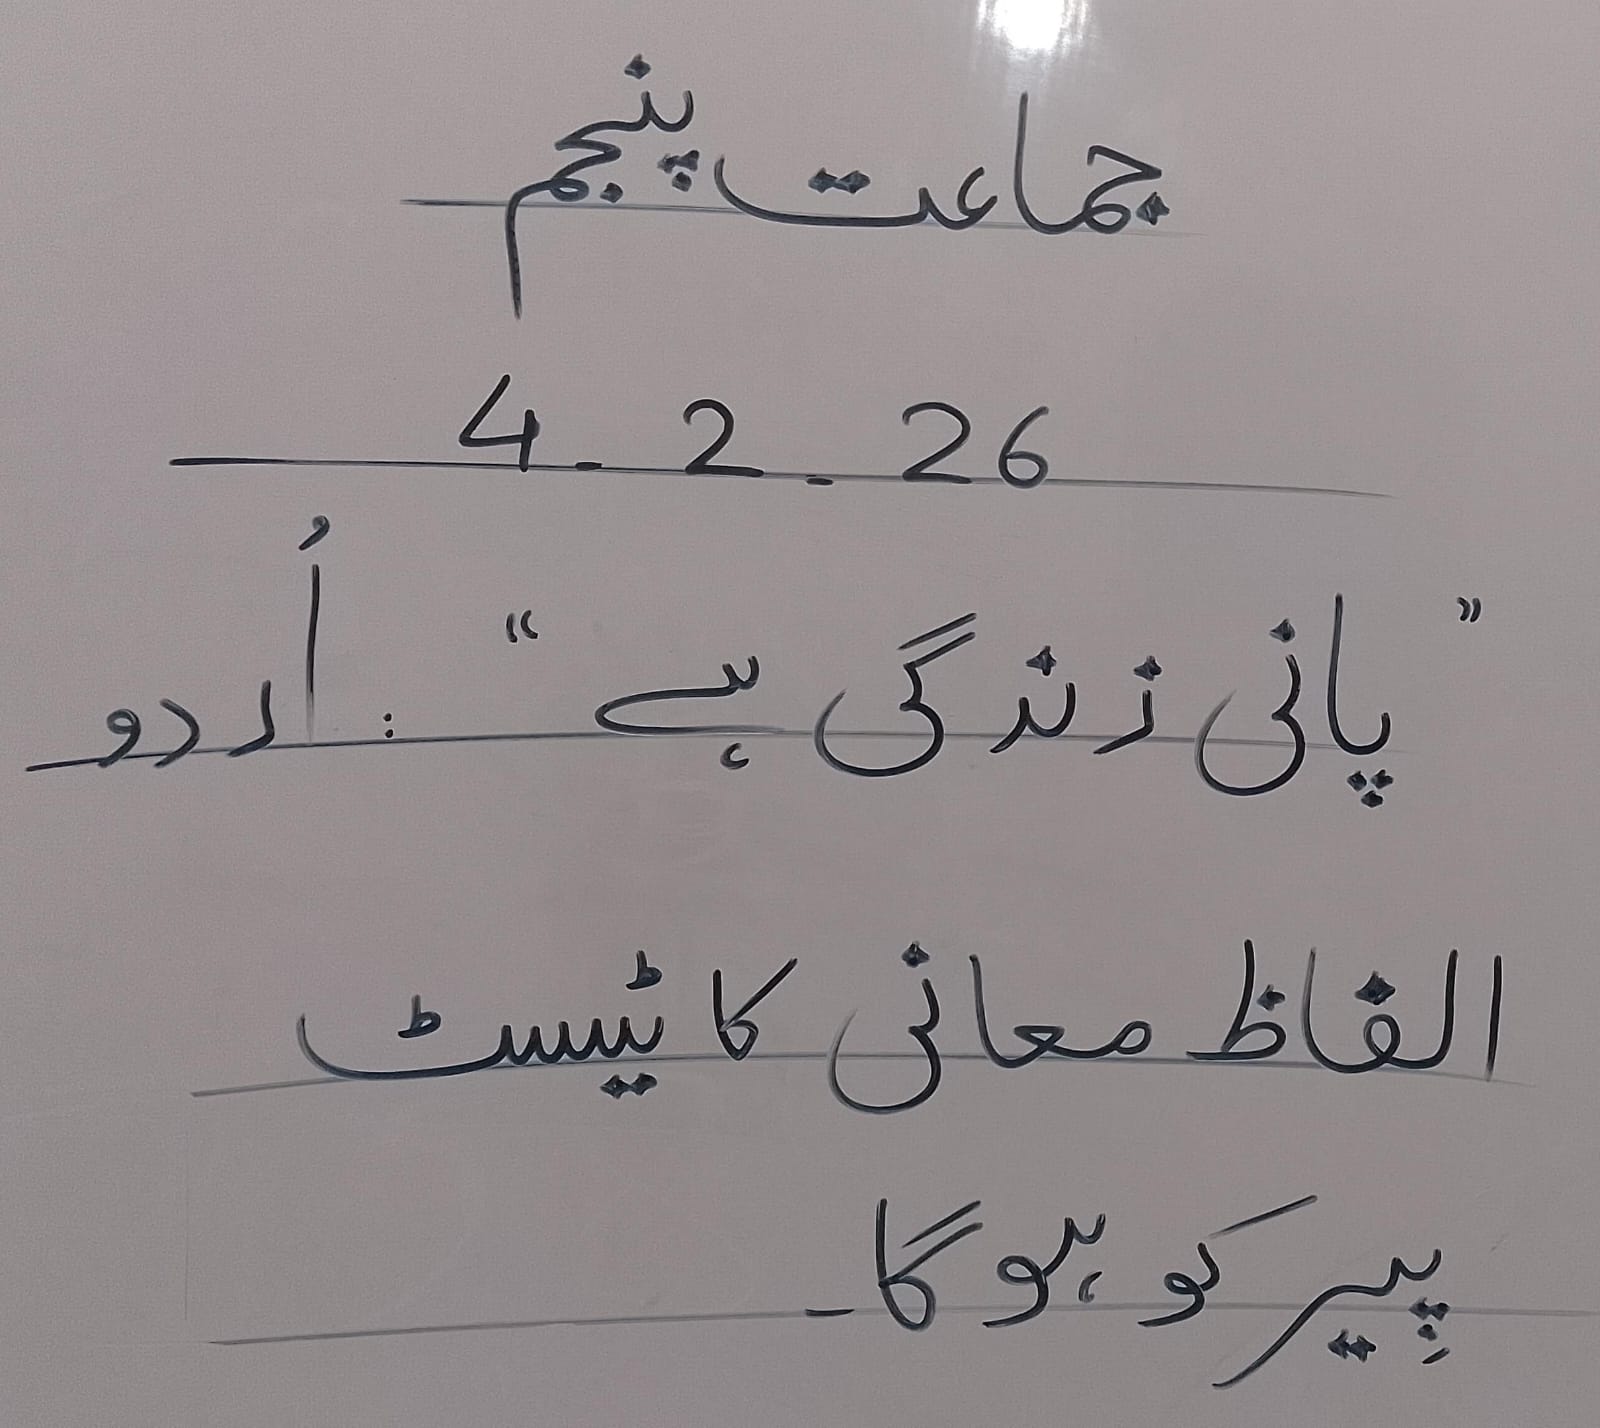 جماعت پنجم
4-2-26
”پانی زندگی ہے“ : اُردو
الفاظ معانی کا ٹیسٹ
پِیر کو ہوگا۔